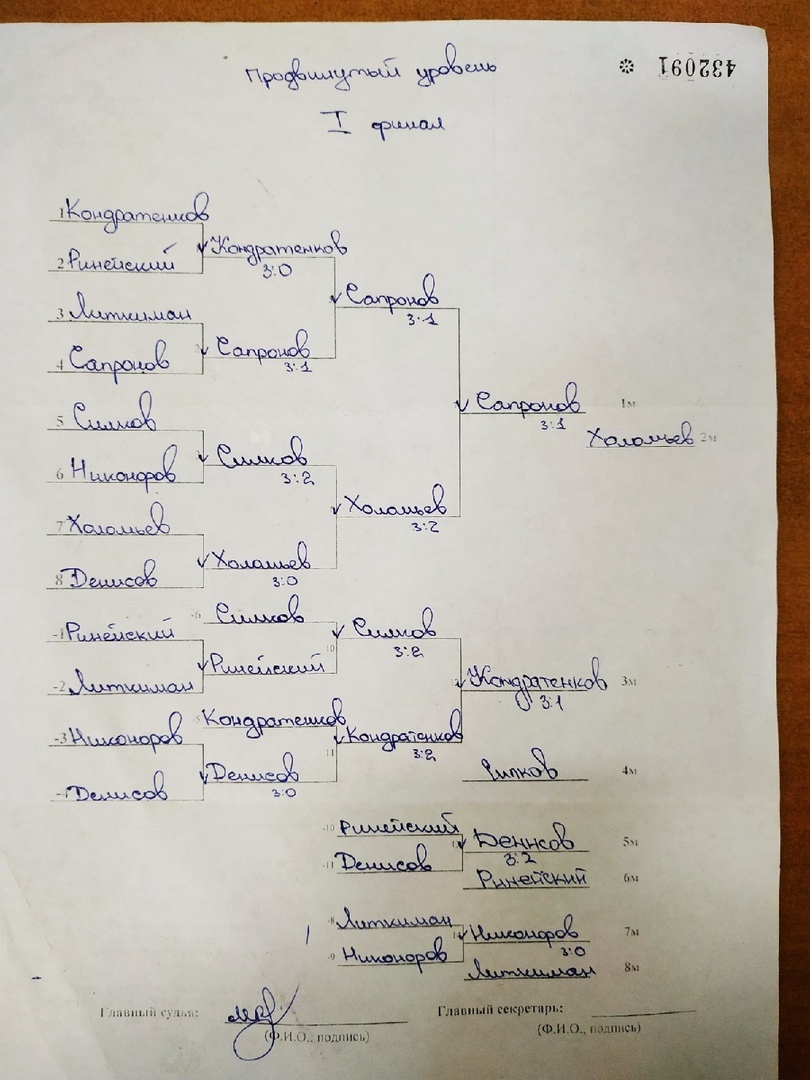 Продвинутый уровень
432091 *
I финал
1 Кондратенков
2 Ринейский
Кондратенков
3:0
3 Литкиман
4 Сапронов
Сапронов
3:1
Сапронов
3:1
5 Силков
6 Никоноров
Силков
3:2
7 Холомьев
8 Денисов
Холомьев
3:0
Холомьев
3:2
Сапронов 1м
3:1
Холомьев 2м
-1 Ринейский
-2 Литкиман
-6 Силков
Ринейский
10
Силков
3:2
-3 Никоноров
-4 Денисов
Кондратенков
Денисов
3:0
11
Кондратенков
3:2
Кондратенков 3м
3:1
Силков 4м
-10 Ринейский
-11 Денисов
Денисов 5м
3:2
Ринейский 6м
-8 Литкиман
-9 Никоноров
Никоноров 7м
3:0
Литкиман 8м
Главный судья: Главный секретарь:
(Ф.И.О., подпись) (Ф.И.О., подпись)